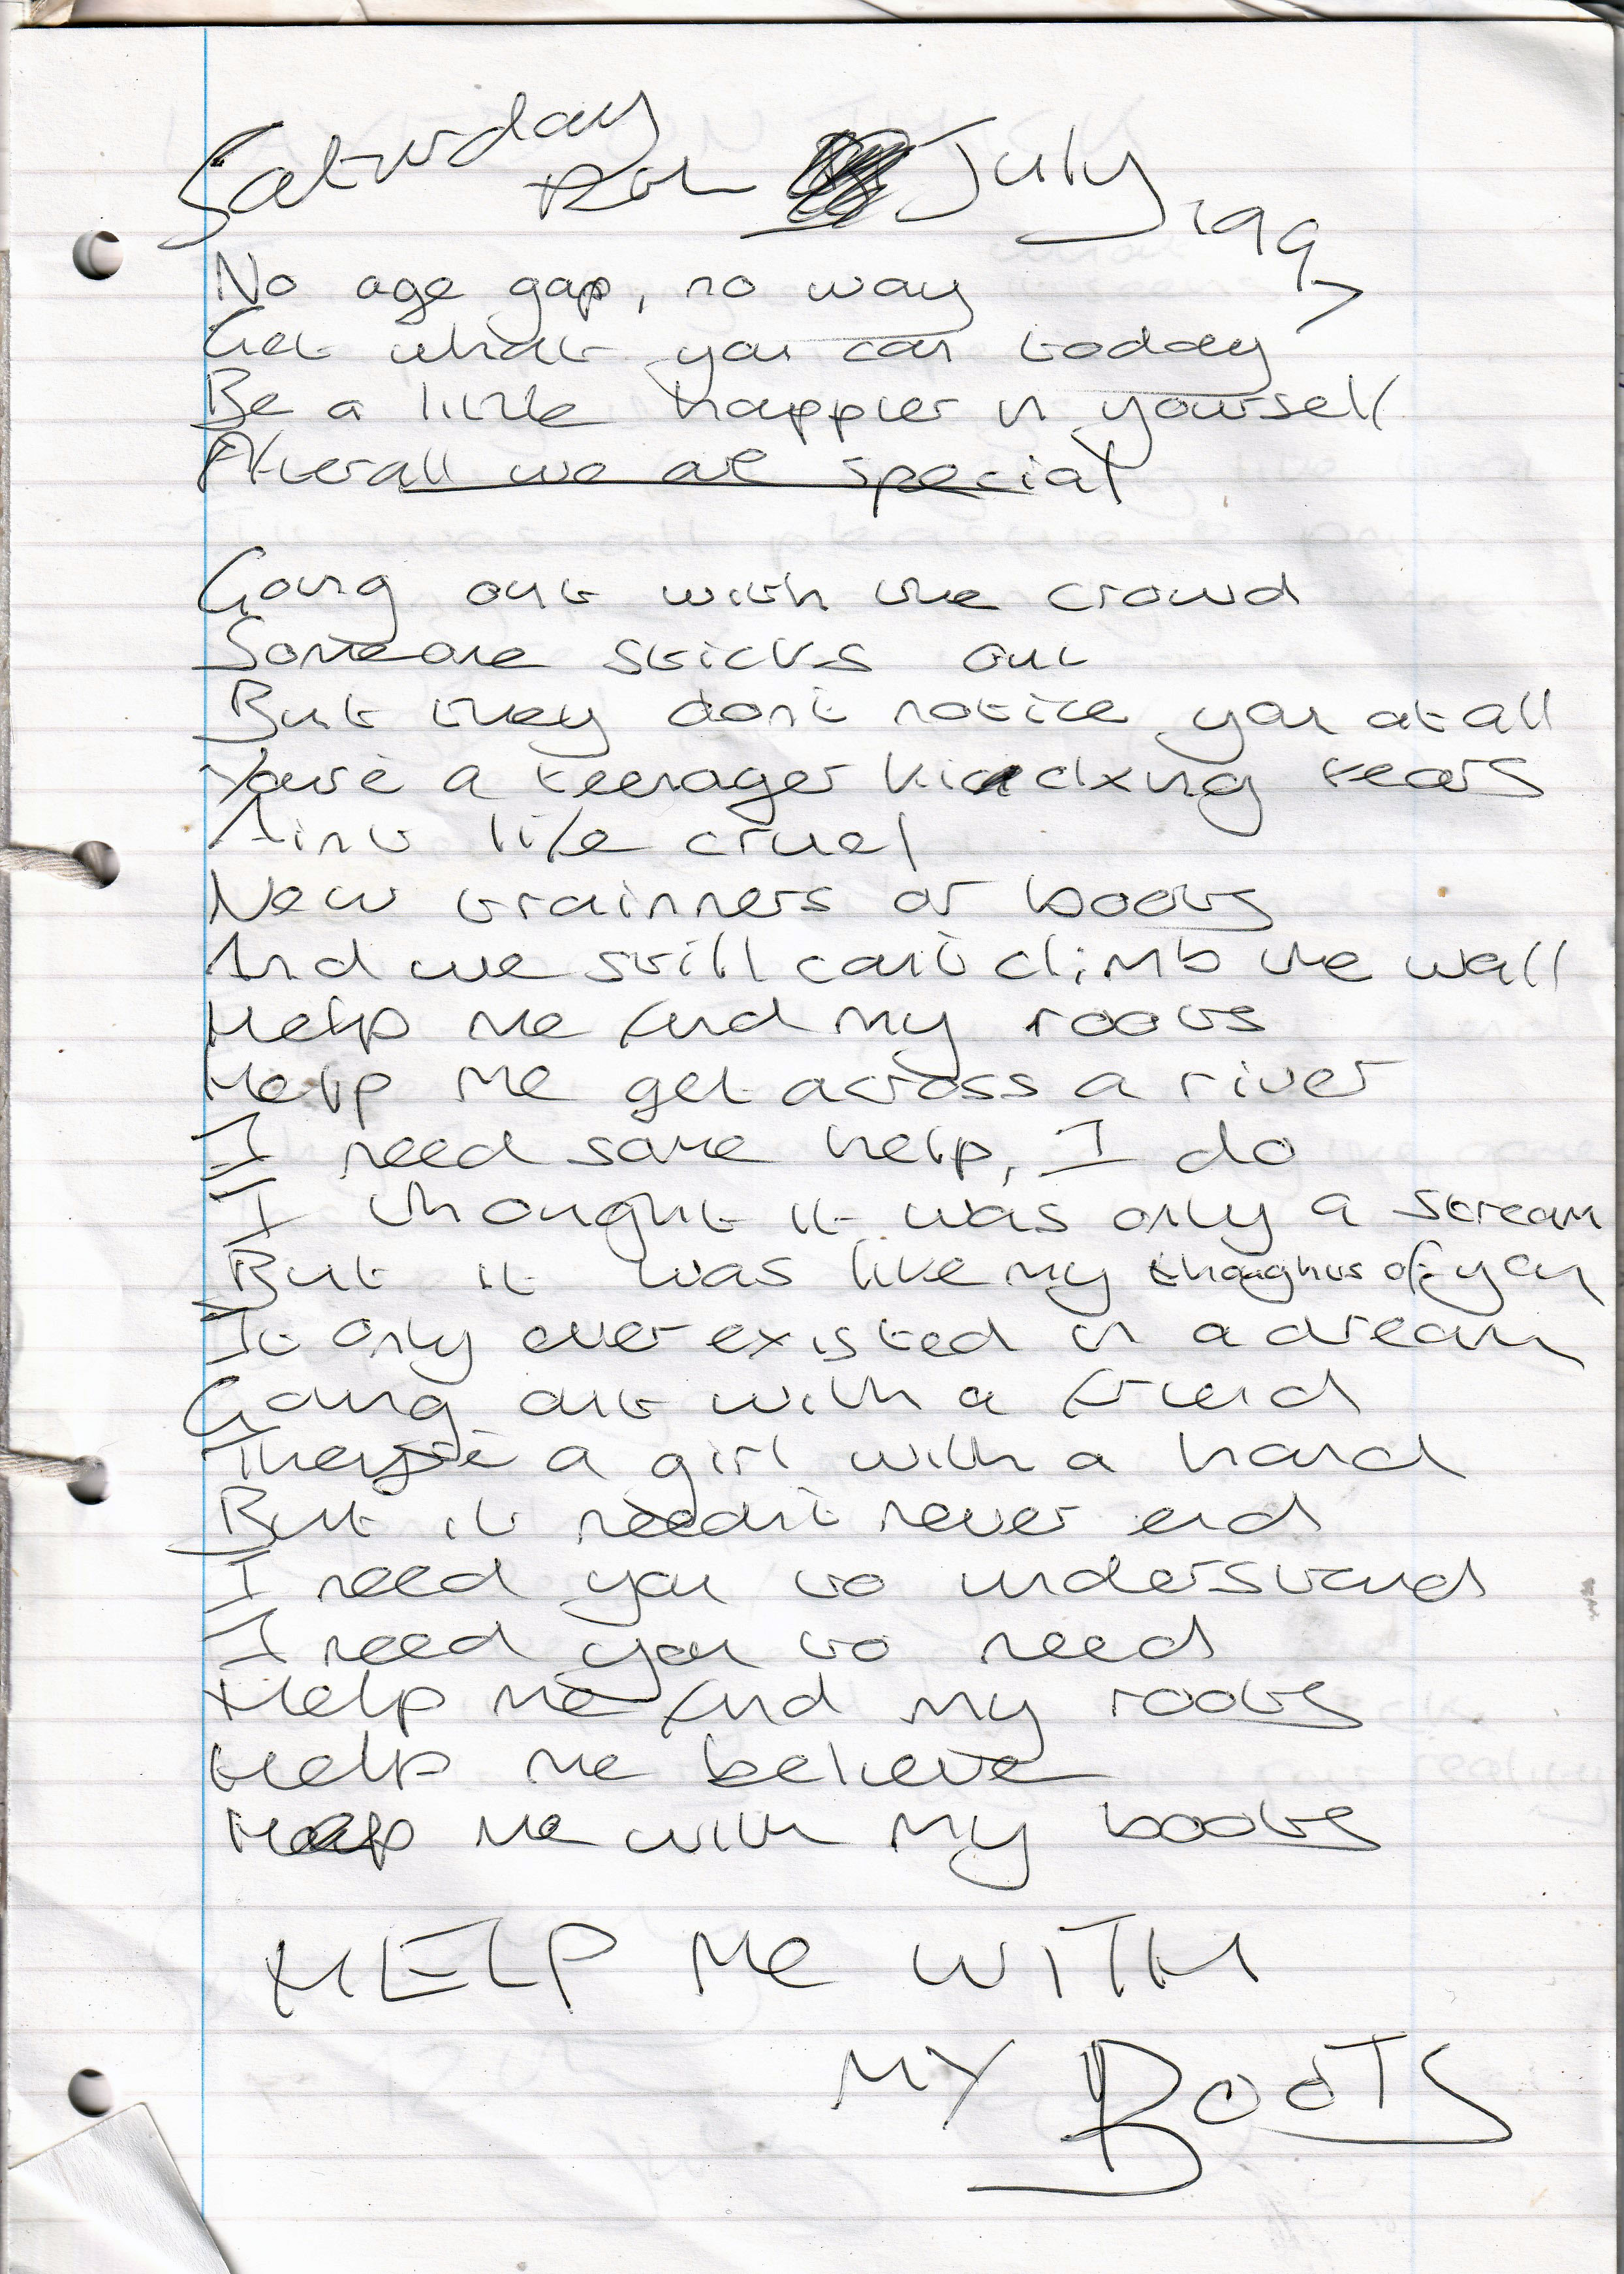 Saturday July 1997
No age gap, no way
Get what you can today
Be a little happier in yourself
Averall we are special
Going out with the crowd
Someone sticks out
But they don't notice you at all
You're a teenager kicking tears
Ain't life cruel
New trainners or boots
And we still can't climb the wall
Help me find my roots
Help me get across a river
I need some help, I do
I thought it was only a stream
But it was like my thoughts of you
It only ever existed in a dream
Going out with a friend
There's a girl with a hand
But it needn't never end
I need you to understand
I need you to need
Help me find my roots
Help me believe
Help me with my boots
HELP Me WITH
MY BOOTS